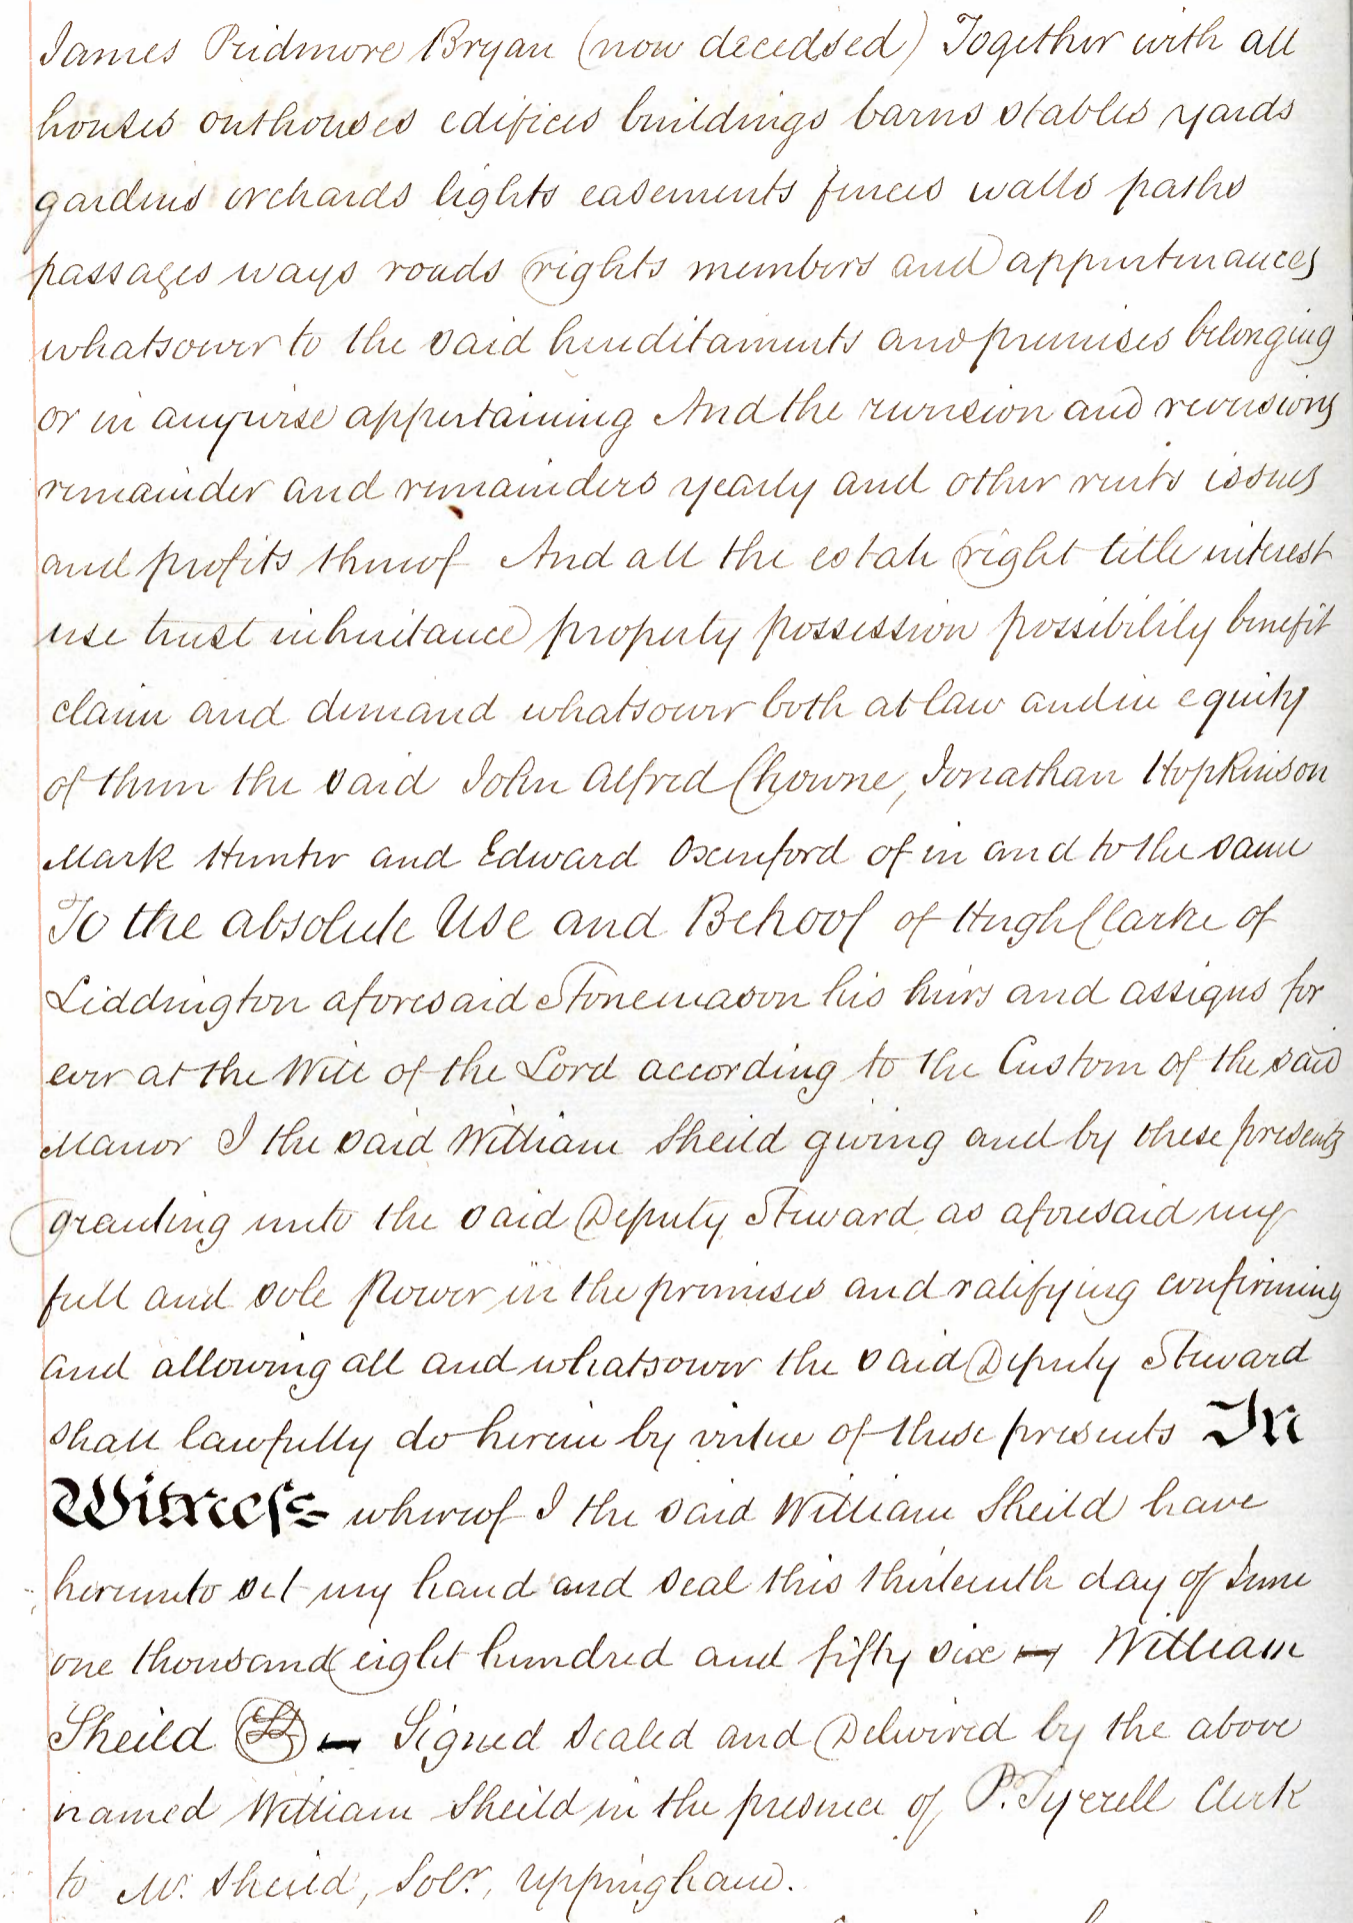 James Pridmore Bryan (now deceased) Together with all
houses outhouses edifices buildings barns stables yards
gardens orchards lights easements fences walls paths
passages ways roads rights members and appurtenances
whatsoever to the said hereditaments and premises belonging
or in anywise appertaining And the reversion and reversions
remainder and remainders yearly and other rents issues
and profits thereof And all the estate right title interest
use trust inheritance property possession possibility benefit
claim and demand whatsoever both at law and in equity
of them the said John Alfred Chowne, Jonathan Hopkinson
Mark Hunter and Edward Oxenford of in and to the same
To the absolute Use and Behoof of Hugh Clarke of
Liddington aforesaid Stonemason his heirs and assigns for
ever at the Will of the Lord according to the Custom of the said
Manor I the said William Sheild giving and by these presents
granting unto the said Deputy Steward as aforesaid my
full and sole Power in the premises and ratifying confirming
and allowing all and whatsoever the said Deputy Steward
shall lawfully do herein by virtue of these presents In
Witness whereof I the said William Sheild have
hereunto set my hand and seal this thirteenth day of June
one thousand eight hundred and fifty six — William
Sheild LS — Signed Sealed and Delivered by the above
named William Sheild in the presence of P. Tyrrell Clerk
to Mr. Sheild, Solr., Uppingham.